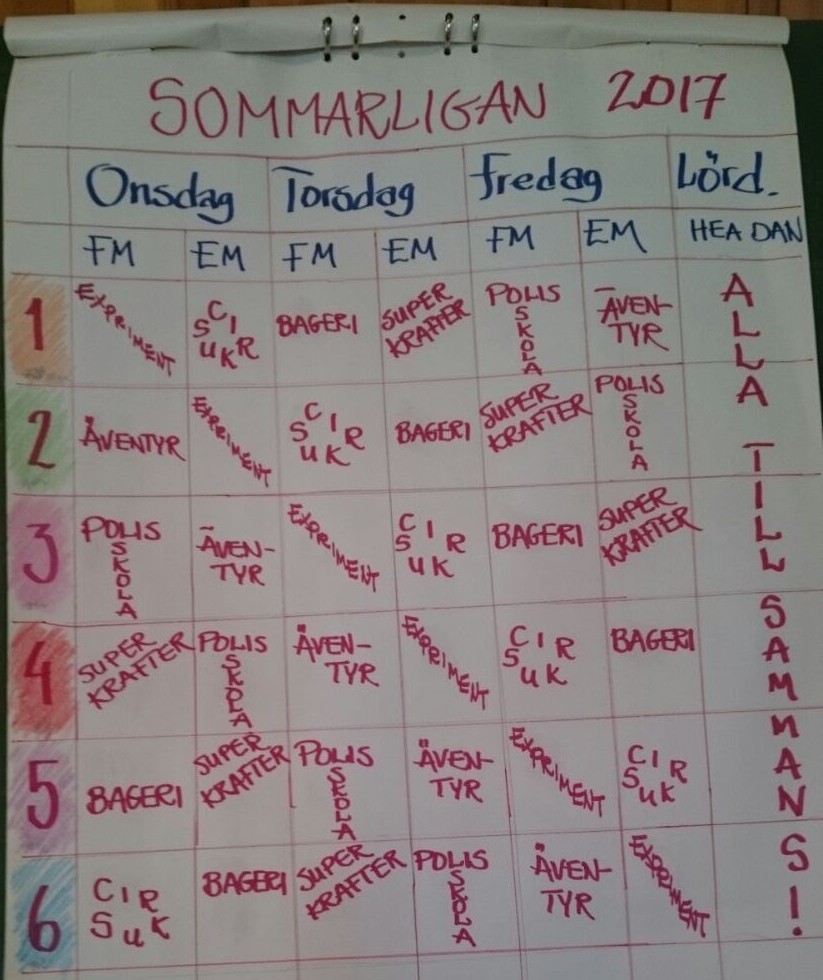 SOMMARLIGAN 2017
Onsdag Torsdag fredag Lörd.
FM EM FM EM FM EM HEA DAN
1 EXPRIMENT CIRSUKR BAGERI SUPER KRAFTER POLISSKOLA ÄVEN-TYR
2 ÄVENTYR EXPRIMENT CIRSUK BAGERI SUPER KRAFTER POLISSKOLA
3 POLISSKOLA ÄVEN-TYR EXPRIMENT CIRSUK BAGERI SUPER KRAFTER
4 SUPER KRAFTER POLISSKOLA ÄVEN-TYR EXPRIMENT CIRSUK BAGERI
5 BAGERI SUPER KRAFTER POLISSKOLA ÄVEN-TYR EXPRIMENT CIRSUK
6 CIRSUK BAGERI SUPER KRAFTER POLISSKOLA ÄVEN-TYR EXPRIMENT
ALLA TILL SAMMANS!